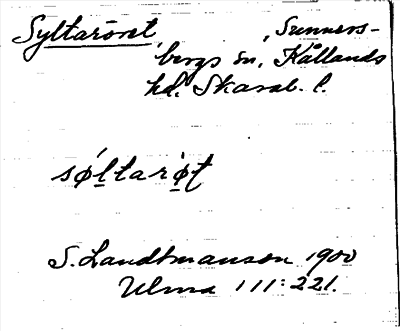 Syltaröret, Sunners-
bergs sn, Kållands
hd. Skarab. l.
søltarøt
S. Landtmanson 1900
Ulma 111:221.